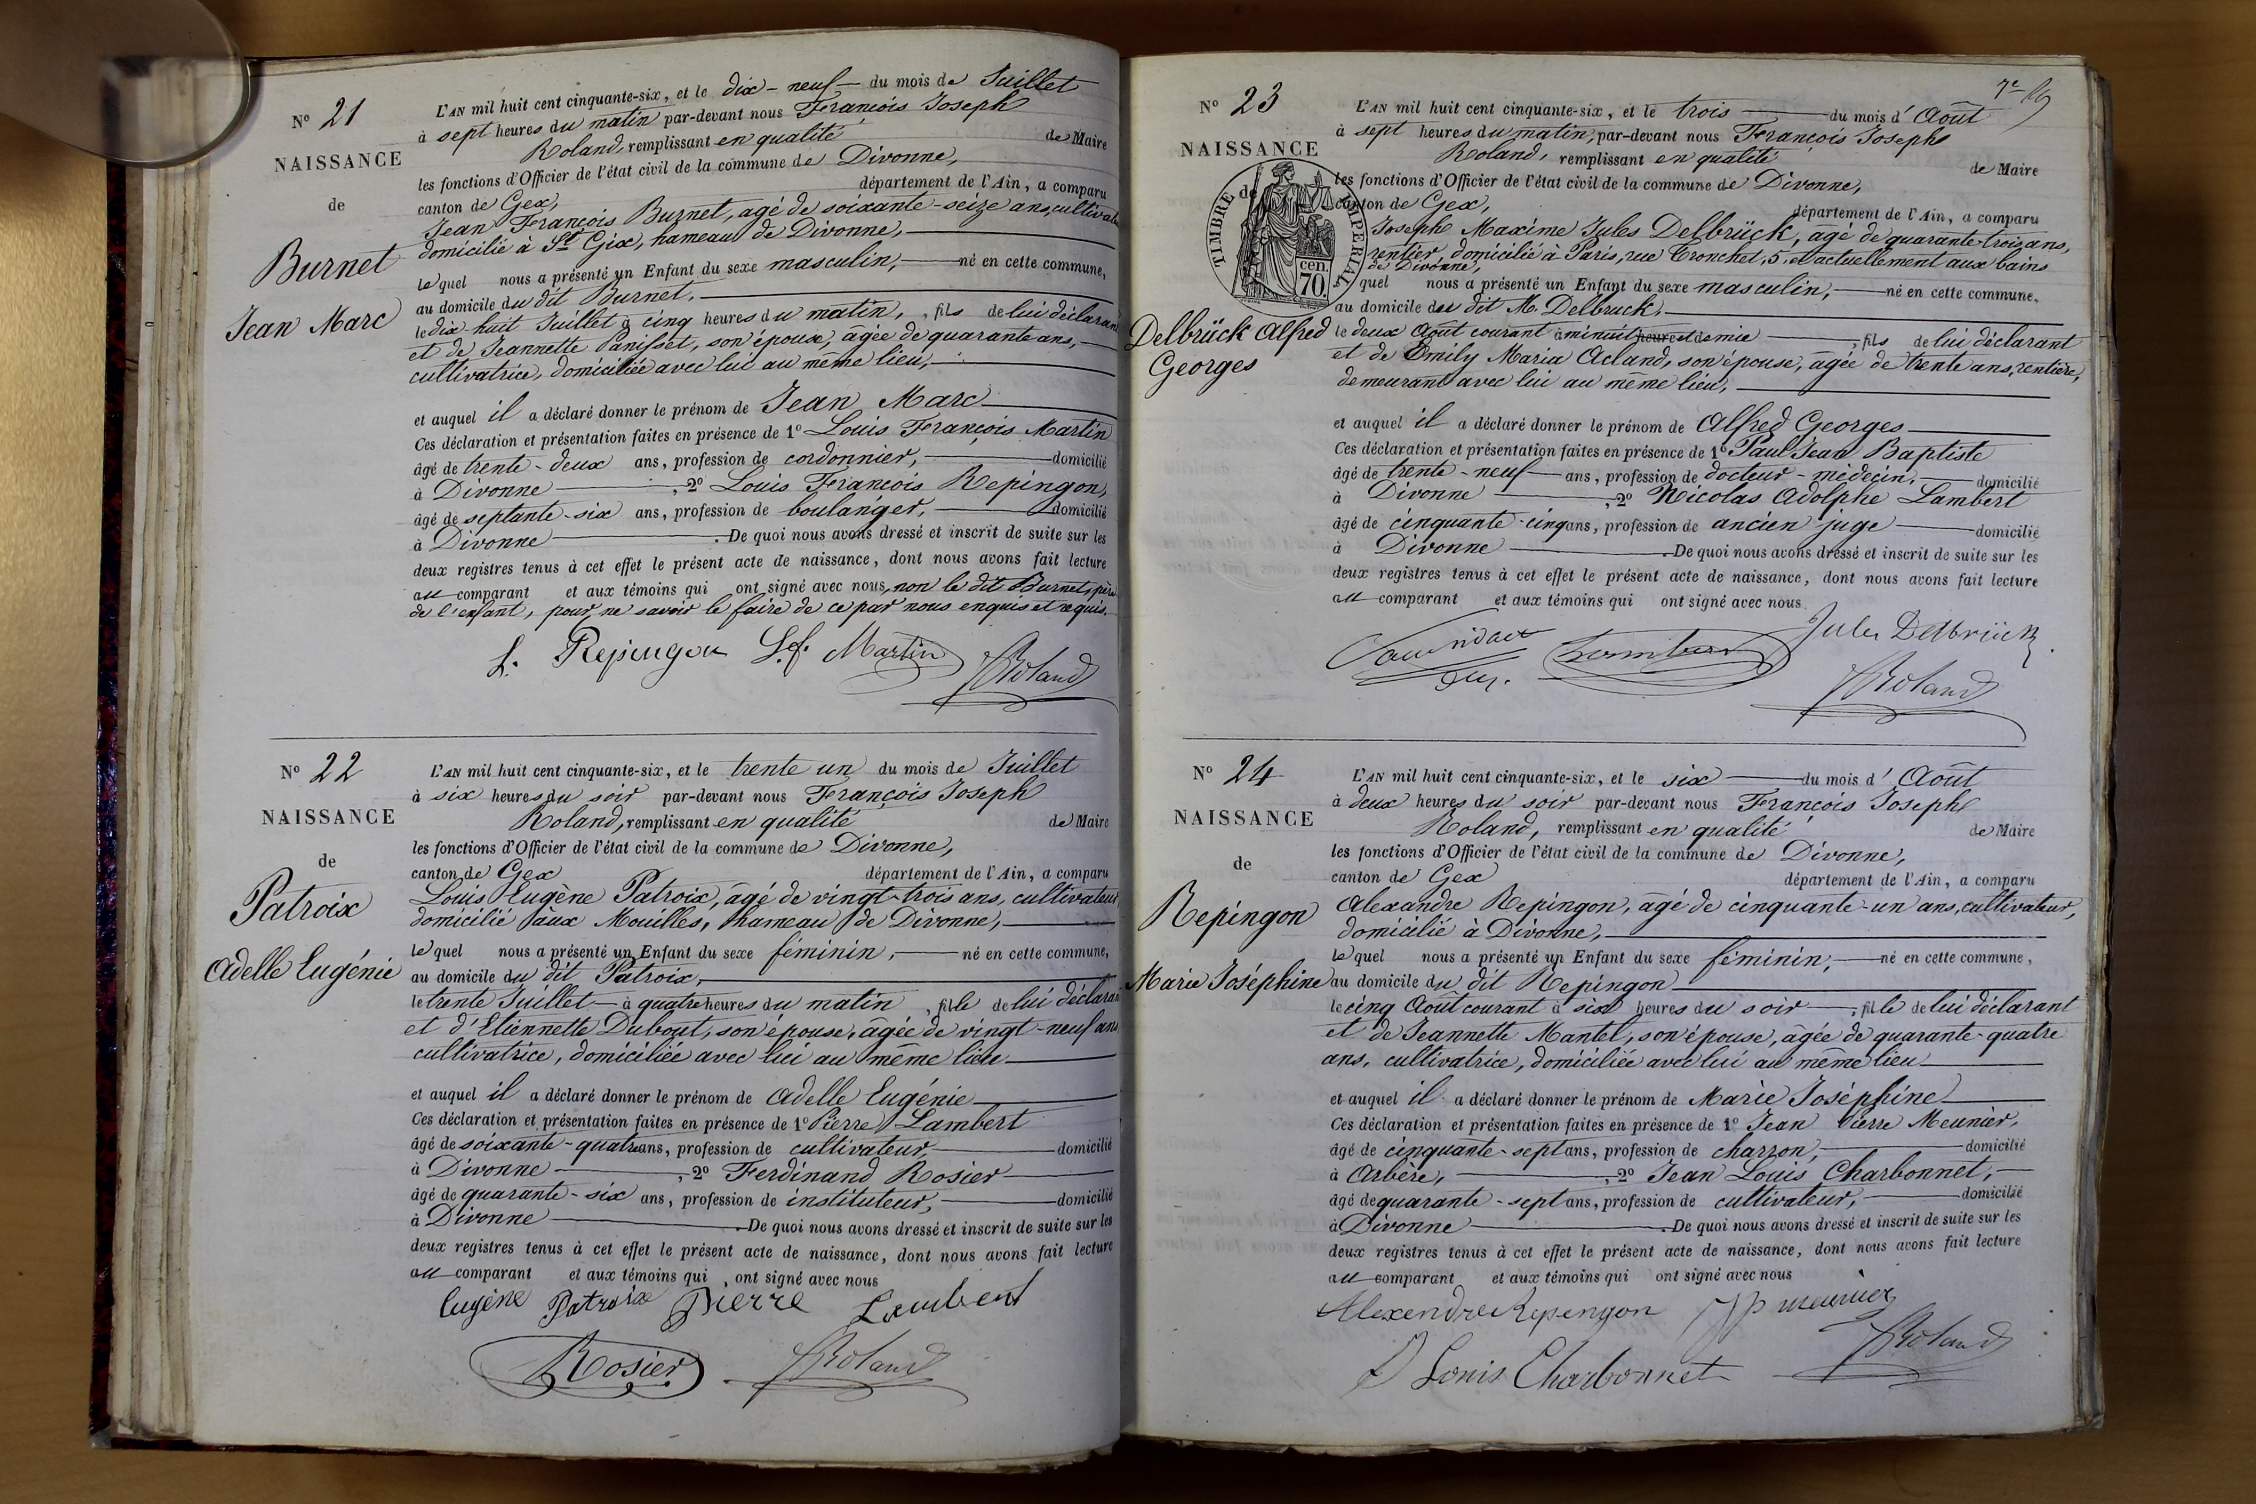 N° 21
NAISSANCE
de
Burnet
Jean Marc
L'AN mil huit cent cinquante-six, et le dix-neuf du mois de Juillet
à sept heures du matin par-devant nous François Joseph
Roland, remplissant en qualité de Maire
les fonctions d'Officier de l'état civil de la commune de Divonne,
canton de Gex, département de l'Ain, a comparu
Jean François Burnet, agé de soixante-seize ans, cultivat
domicilié à St Gix, hameau de Divonne,
lequel nous a présenté un Enfant du sexe masculin, né en cette commune,
au domicile du dit Burnet,
le dix huit Juillet à cinq heures du matin, fils de lui déclarant
et de Jeannette Panisset, son épouse, âgée de quarante ans,
cultivatrice, domiciliée avec lui au même lieu,
et auquel il a déclaré donner le prénom de Jean Marc
Ces déclaration et présentation faites en présence de 1° Louis François Martin
âgé de trente-deux ans, profession de cordonnier, domicilié
à Divonne, 2° Louis François Repingon,
âgé de septante-six ans, profession de boulanger, domicilié
à Divonne. De quoi nous avons dressé et inscrit de suite sur les
deux registres tenus à cet effet le présent acte de naissance, dont nous avons fait lecture
au comparant et aux témoins qui ont signé avec nous, non le dit Burnet, père
de l'enfant, pour ne savoir le faire de ce par nous enquis et requis.
L. Repingon L.f. Martin
JRoland
N° 22
NAISSANCE
de
Patroix
Adelle Eugénie
L'AN mil huit cent cinquante-six, et le trente un du mois de Juillet
à six heures du soir par-devant nous François Joseph
Roland, remplissant en qualité de Maire
les fonctions d'Officier de l'état civil de la commune de Divonne,
canton de Gex département de l'Ain, a comparu
Louis Eugène Patroix, âgé de vingt-trois ans, cultivateur
domicilié aux Mouilles, hameau de Divonne,
lequel nous a présenté un Enfant du sexe féminin, né en cette commune,
au domicile du dit Patroix,
le trente Juillet à quatre heures du matin, fille de lui déclarant
et d'Etiennette Dubout, son épouse, agée de vingt-neuf ans
cultivatrice, domiciliée avec lui au même lieu
et auquel il a déclaré donner le prénom de Adelle Eugénie
Ces déclaration et présentation faites en présence de 1° Pierre Lambert
âgé de soixante-quatre ans, profession de cultivateur, domicilié
à Divonne, 2° Ferdinand Rosier
âgé de quarante-six ans, profession de instituteur, domicilié
à Divonne. De quoi nous avons dressé et inscrit de suite sur les
deux registres tenus à cet effet le présent acte de naissance, dont nous avons fait lecture
au comparant et aux témoins qui, ont signé avec nous
Eugène Patroix Pierre Lambert
Rosier JRoland
N° 23
NAISSANCE
de
TIMBRE IMPERIAL
70 cen.
Delbrück Alfred
Georges
L'AN mil huit cent cinquante-six, et le trois du mois d'Août
à sept heures du matin, par-devant nous François Joseph
Roland, remplissant en qualité de Maire
les fonctions d'Officier de l'état civil de la commune de Divonne,
canton de Gex, département de l'Ain, a comparu
Joseph Maxime Jules Delbrück, âgé de quarante trois ans,
rentier, domicilié à Paris, rue Tronchet, 5, et actuellement aux bains
de Divonne,
quel nous a présenté un Enfant du sexe masculin, né en cette commune,
au domicile du dit M. Delbruck,
le deux Août courant à minuit heures et demie, fils de lui déclarant
et de Emily Maria Acland, son épouse, âgée de trente ans, rentière,
demeurant avec lui au même lieu,
et auquel il a déclaré donner le prénom de Alfred Georges
Ces déclaration et présentation faites en présence de 1° Paul Jean Baptiste
âgé de trente-neuf ans, profession de docteur-médecin, domicilié
à Divonne, 2° Nicolas Adolphe Lambert
âgé de cinquante-cinq ans, profession de ancien juge domicilié
à Divonne. De quoi nous avons dressé et inscrit de suite sur les
deux registres tenus à cet effet le présent acte de naissance, dont nous avons fait lecture
au comparant et aux témoins qui ont signé avec nous
Jules Delbrück
Lambert
JRoland
N° 24
NAISSANCE
de
Repingon
Marie Joséphine
L'AN mil huit cent cinquante-six, et le six du mois d'Août
à deux heures du soir par-devant nous François Joseph
Roland, remplissant en qualité de Maire
les fonctions d'Officier de l'état civil de la commune de Divonne,
canton de Gex département de l'Ain, a comparu
Alexandre Repingon, agé de cinquante-un ans, cultivateur,
domicilié à Divonne,
lequel nous a présenté un Enfant du sexe féminin, né en cette commune,
au domicile du dit Repingon
le cinq Août courant à six heures du soir, fille de lui déclarant
et de Jeannette Mantel, son épouse, âgée de quarante-quatre
ans, cultivatrice, domiciliée avec lui au même lieu
et auquel il a déclaré donner le prénom de Marie Joséphine
Ces déclaration et présentation faites en présence de 1° Jean Pierre Meunier,
âgé de cinquante-sept ans, profession de charron, domicilié
à Arbère, 2° Jean Louis Charbonnet,
âgé de quarante-sept ans, profession de cultivateur, domicilié
à Divonne. De quoi nous avons dressé et inscrit de suite sur les
deux registres tenus à cet effet le présent acte de naissance, dont nous avons fait lecture
au comparant et aux témoins qui ont signé avec nous
Alexendre Repengon JP meunier
Louis Charbonnet JRoland